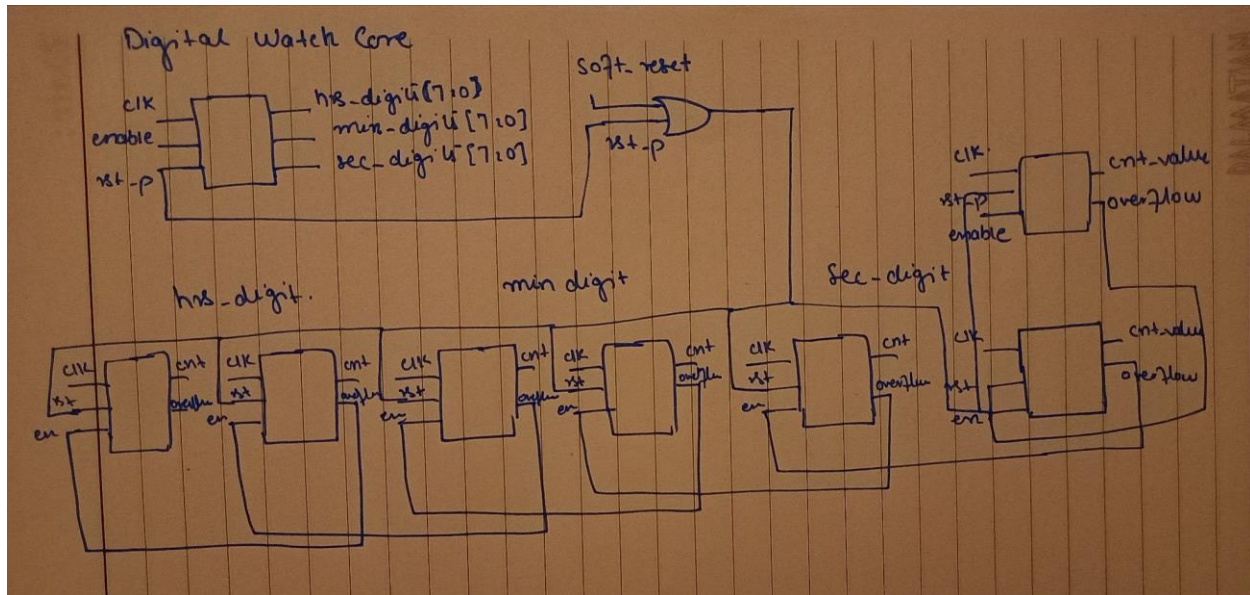 Digital Watch Core
soft_reset
clk
enable
rst_p
hrs_digits[7:0]
min_digits[7:0]
sec_digits[7:0]
rst_p
clk
rst_p
enable
cnt_value
overflow
hrs_digit.
min digit
sec_digit
clk
rst
en
cnt
overflw
clk
rst
en
cnt
overflw
clk
rst
en
cnt
overflw
clk
rst
en
cnt
overflw
clk
rst
en
cnt
overflw
clk
rst
en
cnt_value
overflow